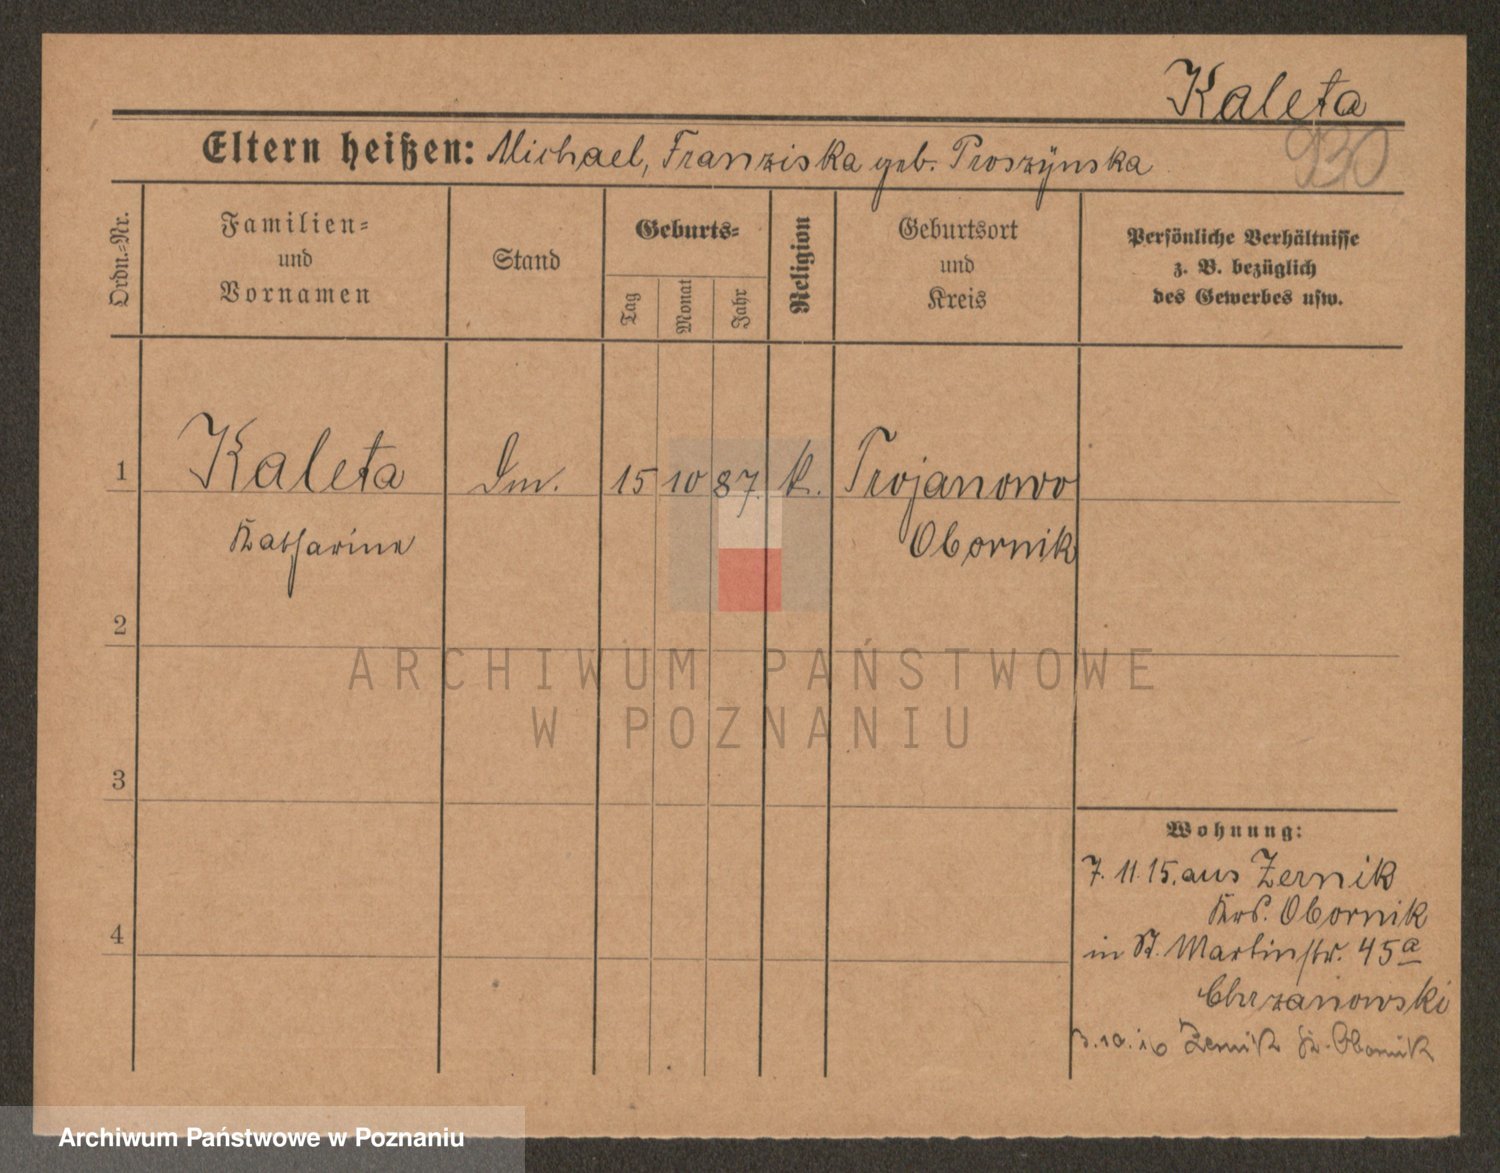 Kaleta
930
Eltern heißen: Michael, Franziska geb. Proszÿnska
Ordn.=Nr.
Familien=
und
Vornamen
Stand
Geburts=
Tag
Monat
Jahr
Religion
Geburtsort
und
Kreis
Persönliche Verhältnisse
z. B. bezüglich
des Gewerbes usw.
1 Kaleta 15 10 87. k. Trojanowo
Katharina Obornik
2
ARCHIWUM PAŃSTWOWE
W POZNANIU
3
Wohnung:
7. 11. 15. aus Zernik
Krs. Obornik
4
in St. Martinstr. 45a
Chrzanowski
Zernik Kr. Obornik
Archiwum Państwowe w Poznaniu